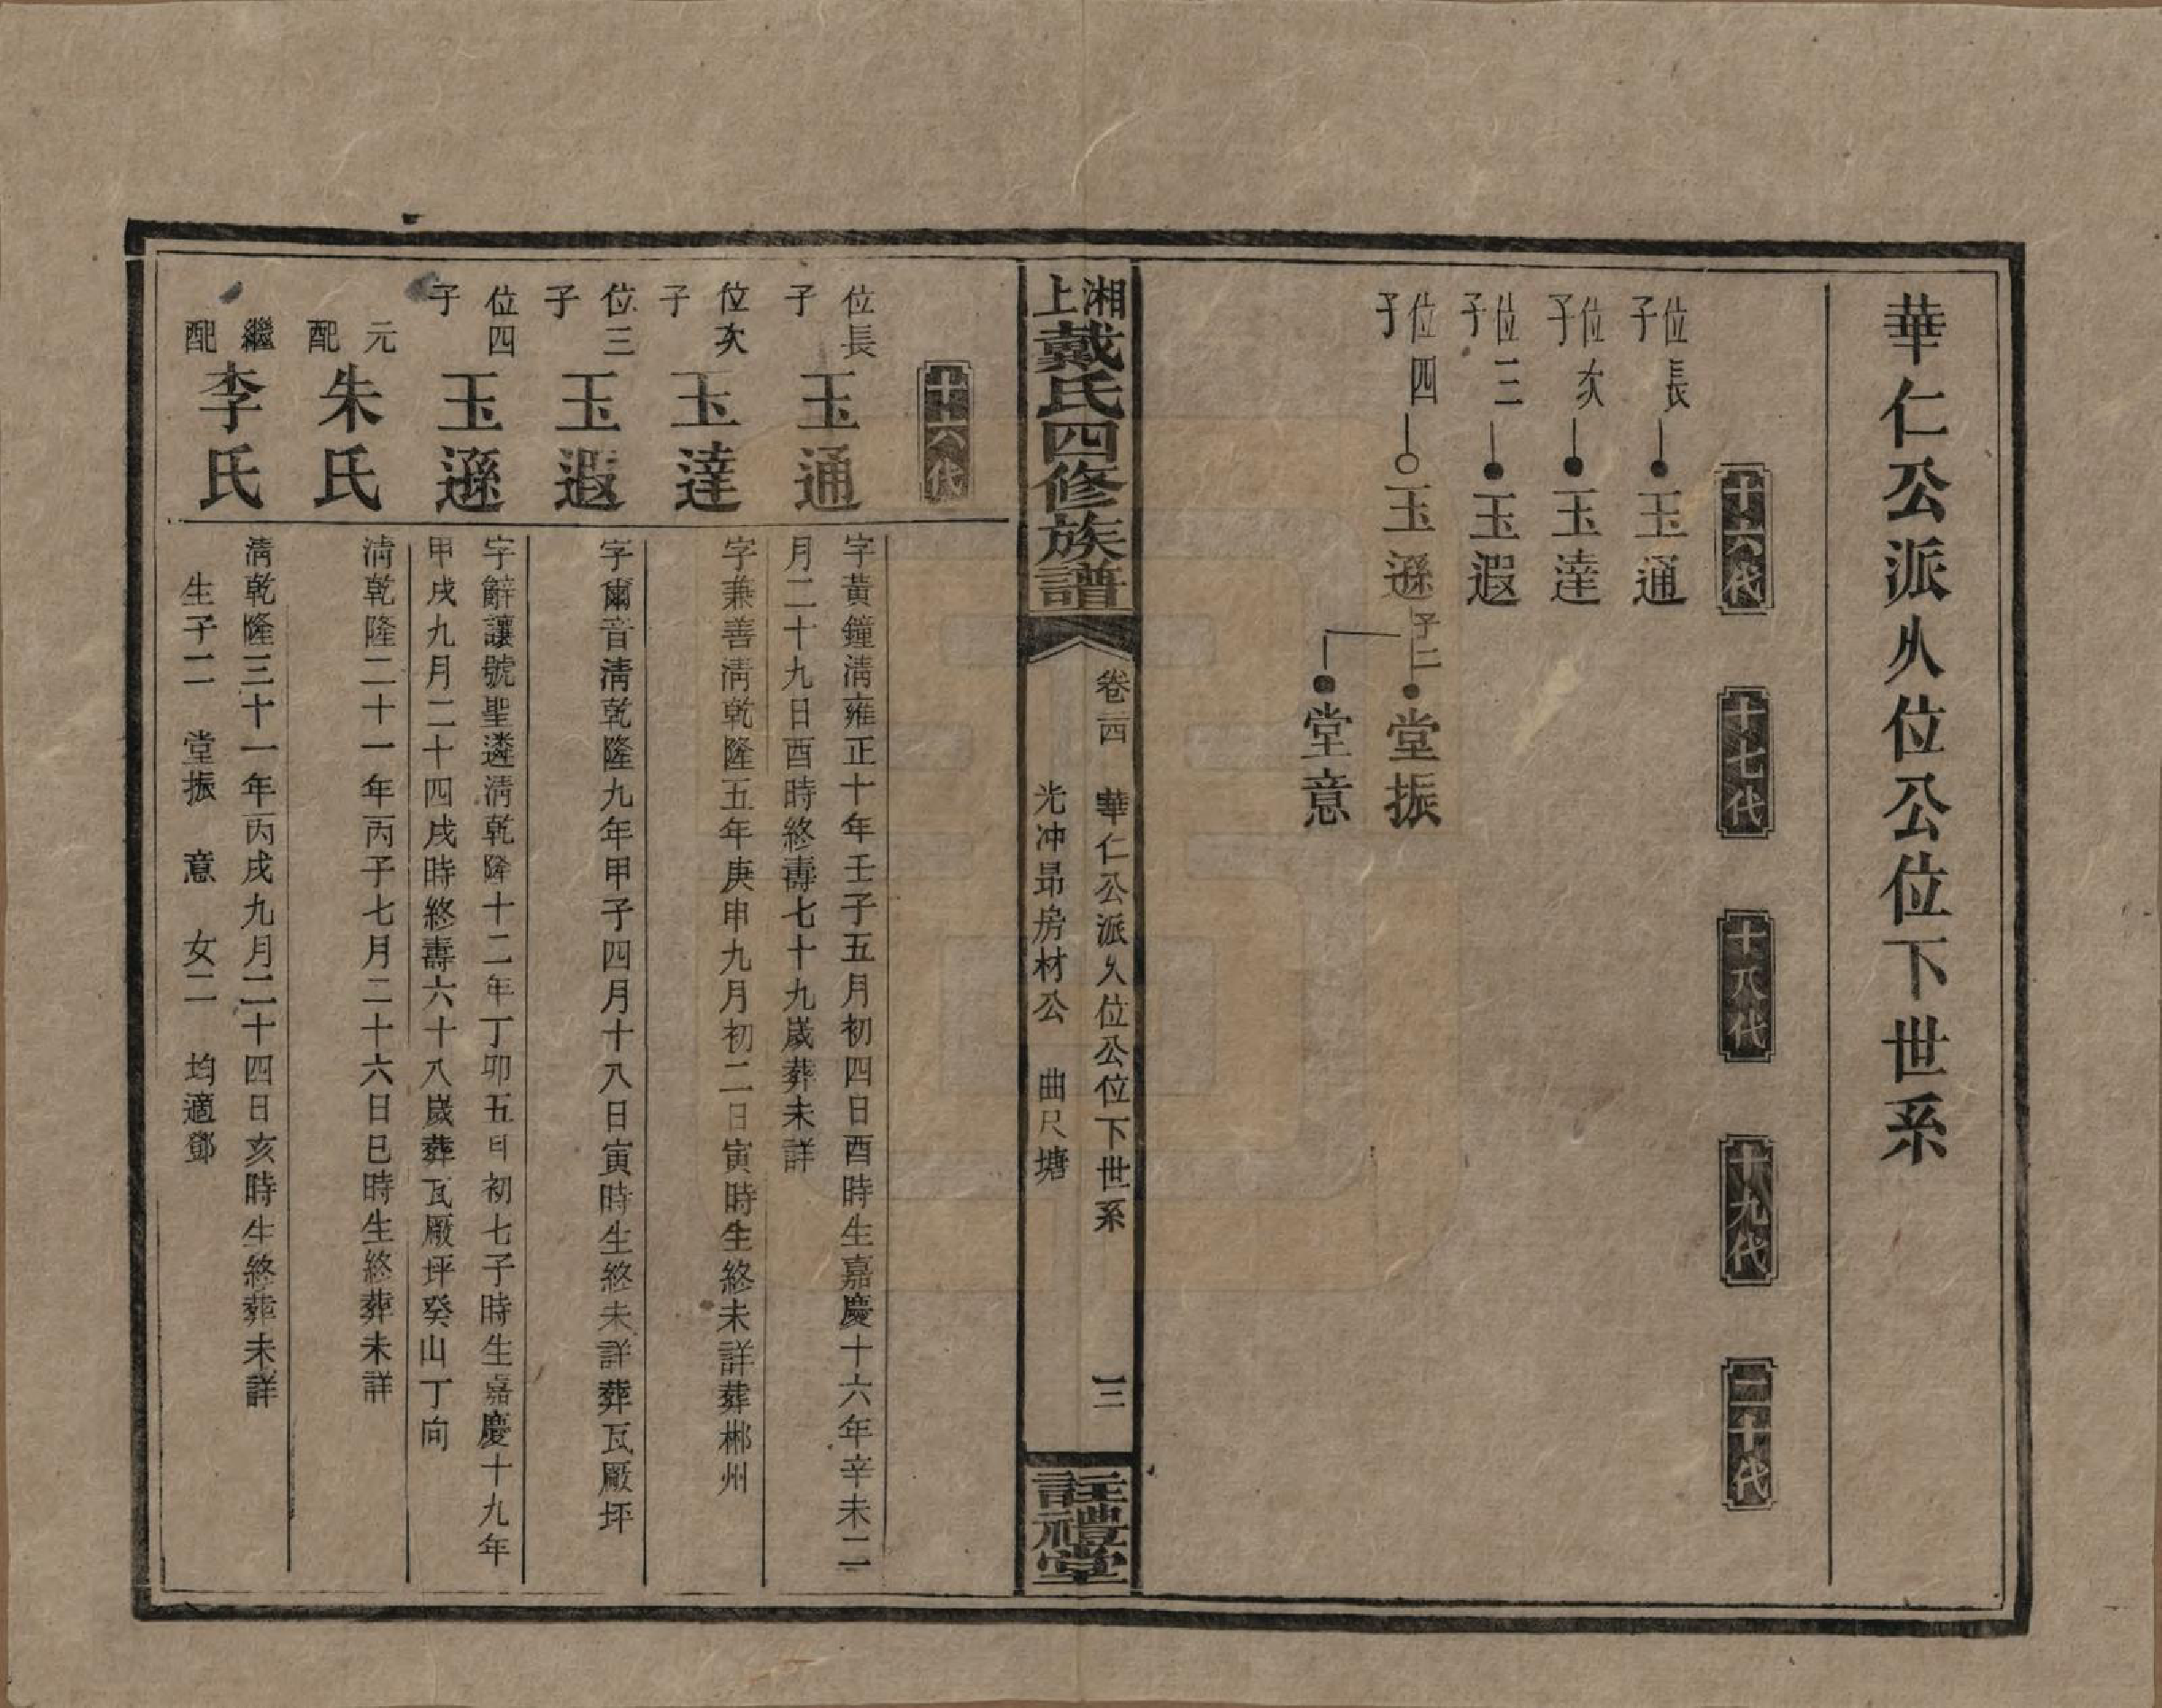 華仁公派乆位公位下世系
十六代
十七代
十八代
十九代
二十代
位長子 玉通
位次子 玉達
位三子 玉遐
位四子 玉遜 子二 堂振
堂意
湘上戴氏四修族譜
卷二四 華仁公派乆位公位下世系 三
光冲昻房材公 曲尺塘
註禮堂
十六代
位長子 玉通
字黃鐘淸雍正十年壬子五月初四日酉時生嘉慶十六年辛未二
月二十九日酉時終壽七十九歲葬未詳
位次子 玉達
字兼善淸乾隆五年庚申九月初二日寅時生終未詳葬郴州
位三子 玉遐
字爾音淸乾隆九年甲子四月十八日寅時生終未詳葬瓦厰坪
位四子 玉遜
字辭讓號聖遴淸乾隆十二年丁卯五月初七子時生嘉慶十九年
甲戌九月二十四戌時終壽六十八歲葬瓦厰坪癸山丁向
元配 朱氏
淸乾隆二十一年丙子七月二十六日巳時生終葬未詳
繼配 李氏
淸乾隆三十一年丙戌九月二十四日亥時生終葬未詳
生子二 堂振 意 女二 均適鄧